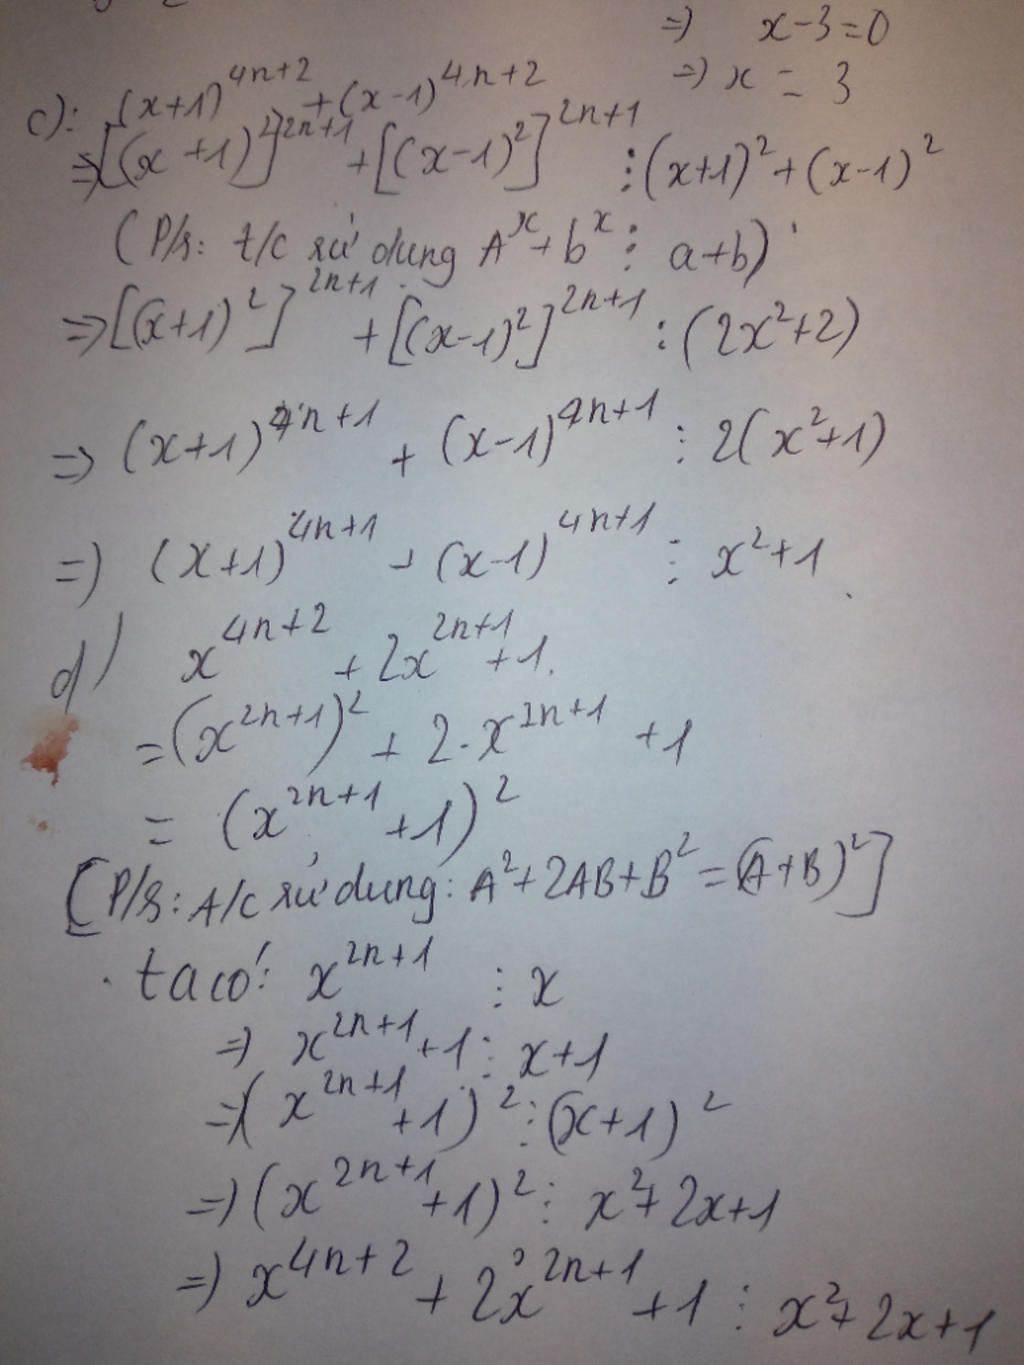 => x-3=0
=> x = 3
c): (x+1)^{4n+2} + (x-1)^{4n+2}
=> [(x+1)^2]^{2n+1} + [(x-1)^2]^{2n+1} ⋮ (x+1)^2 + (x-1)^2
(P/s: t/c sử dụng A^x + b^x ⋮ a+b)
=> [(x+1)^2]^{2n+1} + [(x-1)^2]^{2n+1} ⋮ (2x^2+2)
=> (x+1)^{4n+1} + (x-1)^{4n+1} ⋮ 2(x^2+1)
=> (x+1)^{4n+1} + (x-1)^{4n+1} ⋮ x^2+1
d) x^{4n+2} + 2x^{2n+1} + 1.
= (x^{2n+1})^2 + 2.x^{2n+1} + 1
= (x^{2n+1} + 1)^2
[P/s: A/c sử dụng: A^2 + 2AB + B^2 = (A+B)^2]
ta có: x^{2n+1} ⋮ x
=> x^{2n+1} + 1 ⋮ x+1
=> (x^{2n+1} + 1)^2 ⋮ (x+1)^2
=> (x^{2n+1} + 1)^2 ⋮ x^2 + 2x+1
=> x^{4n+2} + 2x^{2n+1} + 1 ⋮ x^2 + 2x+1